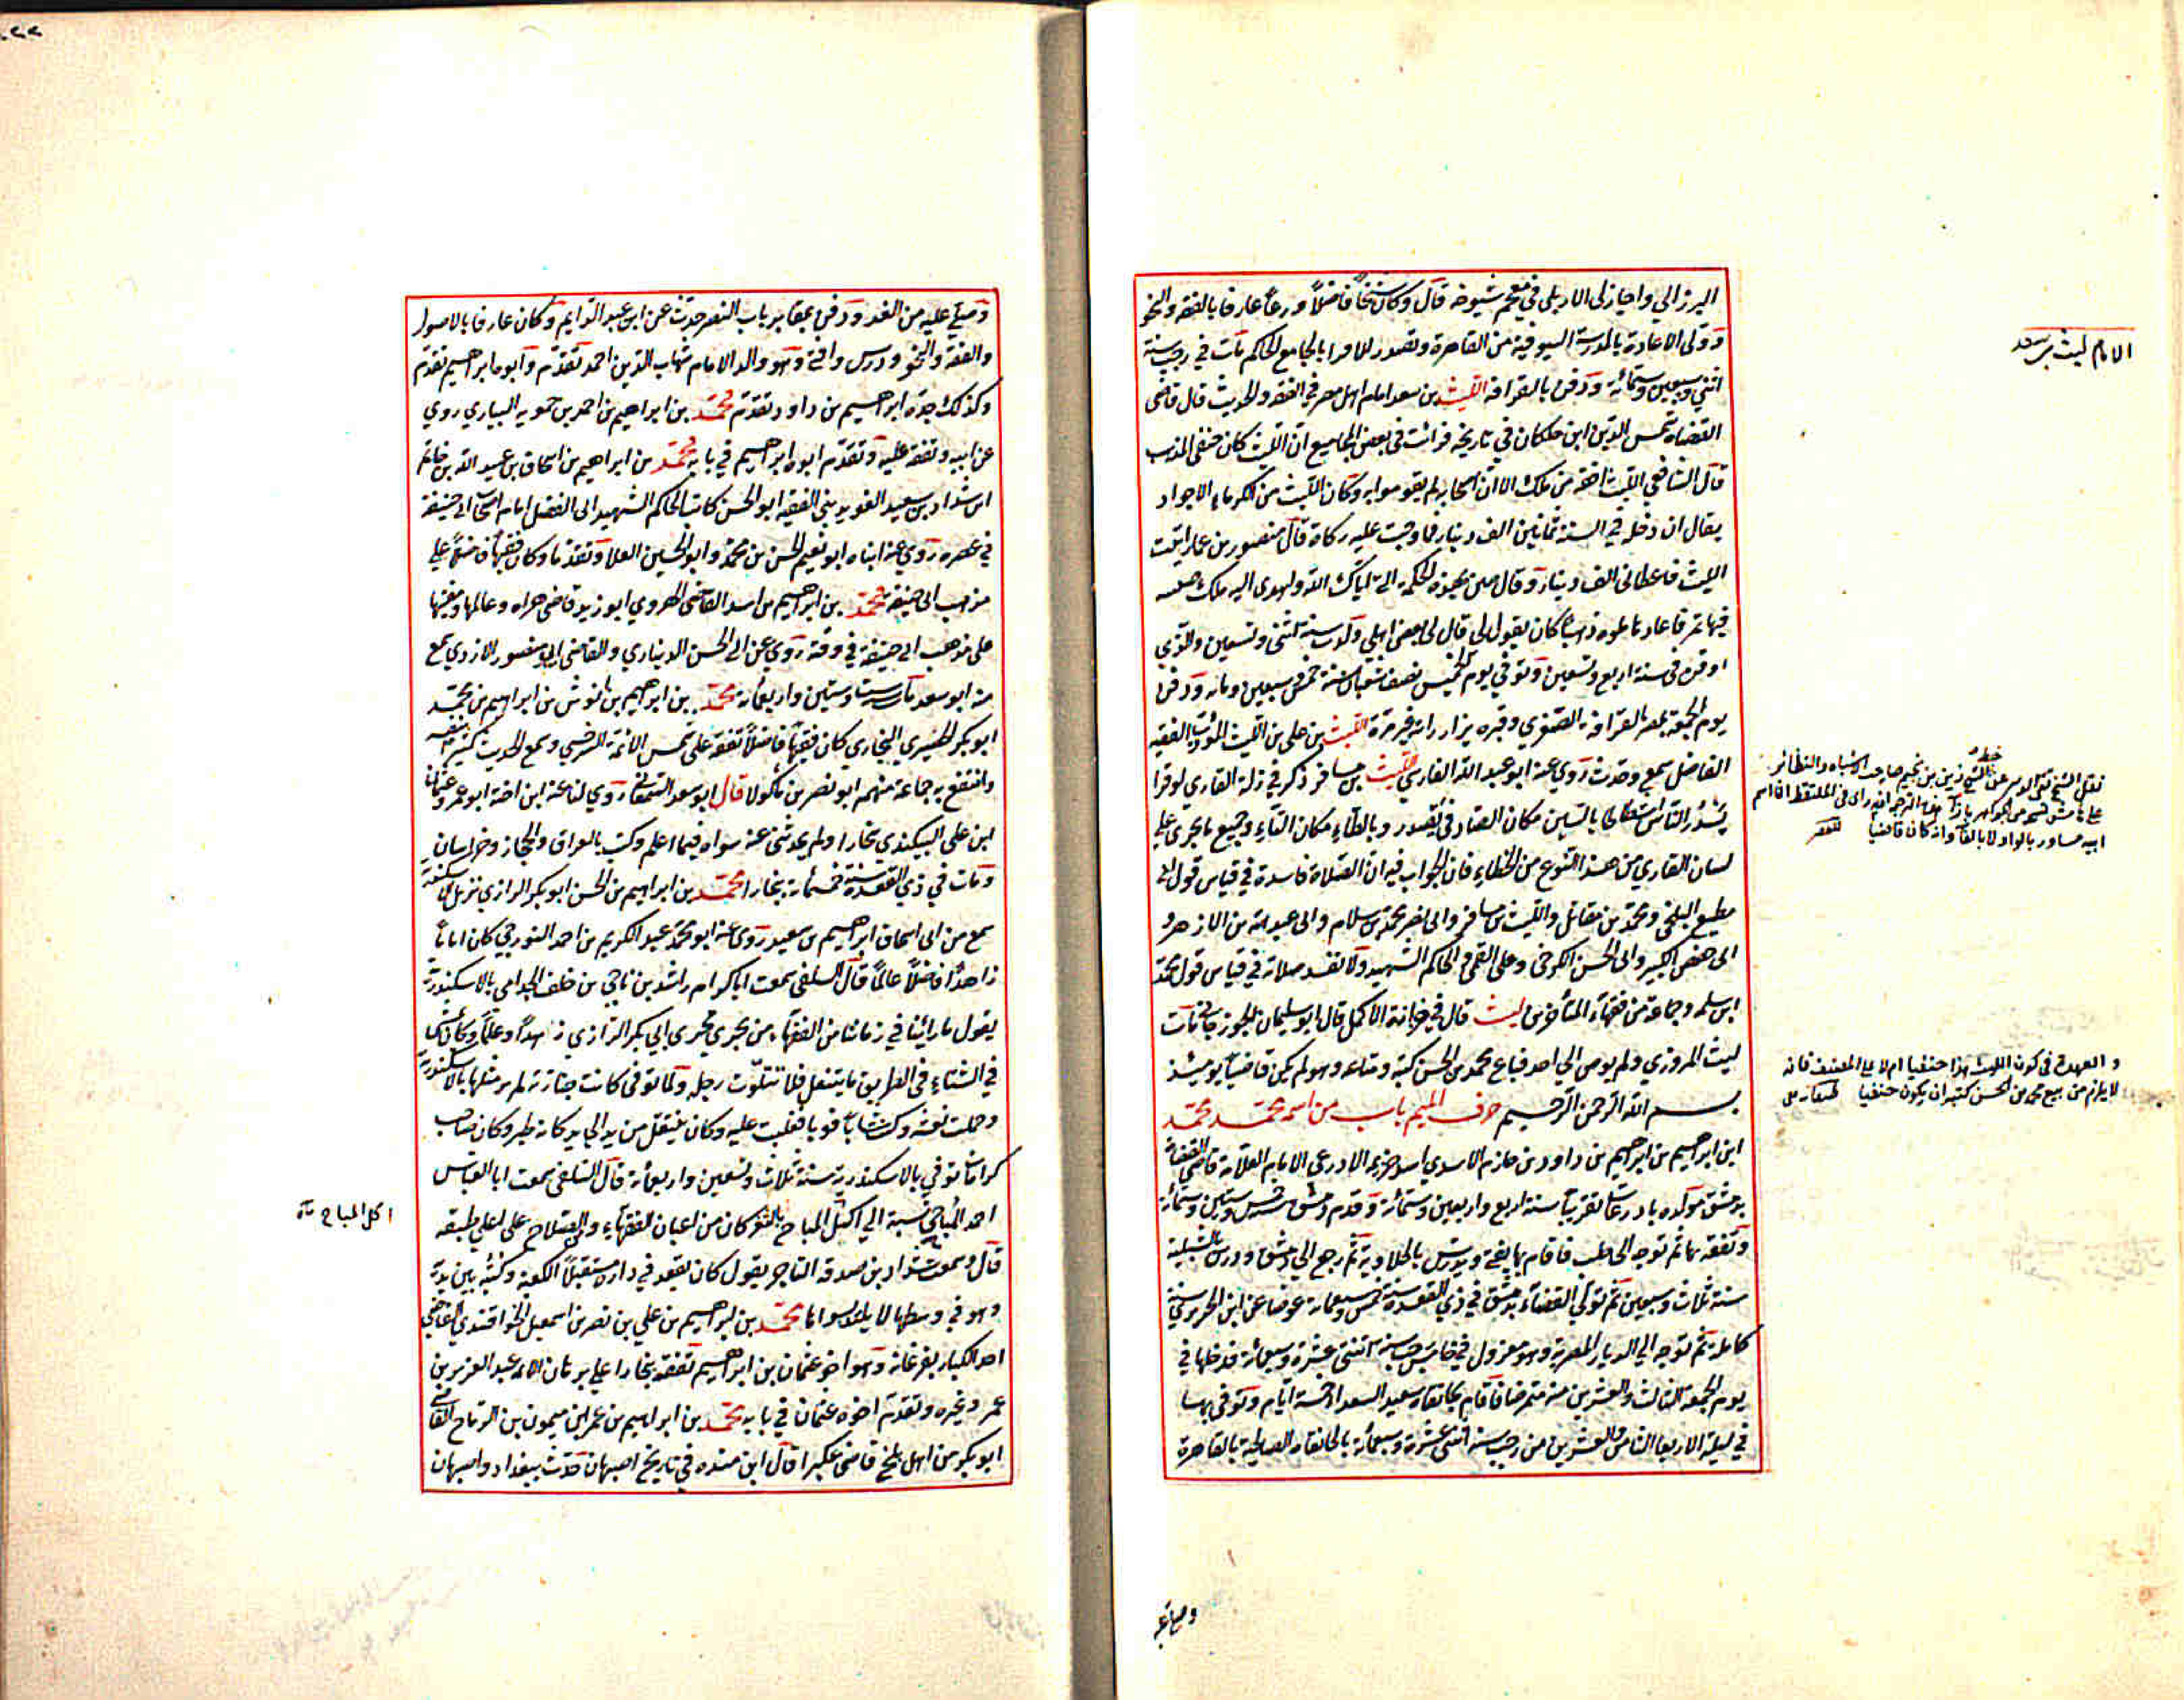 البرزالي واجاز لي الاربلي في معجم شيوخه قال وكان شيخا فاضلا ورعا عارفا بالفقه والنحو
وولي الاعادة بالمدرسة السيوفية من القاهرة وتصدر للاقرا بالجامع الحاكم مات في رجب سنة
اثنتي وسبعين وستمائة ودفن بالقرافة الليث بن سعد امام اهل مصر في الفقه والحديث قال قاضي
القضاة شمس الدين ابن خلكان في تاريخه قرأت في بعض المجاميع ان الليث كان حنفي المذهب
قال الشافعي الليث افقه من مالك الا ان اصحابه لم يقوموا به وكان الليث من الكرماء الاجواد
يقال ان دخله في السنة ثمانين الف دينار فما وجبت عليه زكاة قال منصور بن عمار اتيت
الليث فاعطاني الف دينار وقال صن بهذه الحكمة التي اتاك الله واهدى اليه مالك صينية
فيها تمر فاعادها مملوة ذهبا كان يقول لي قال لي بعض اهلي ولدت سنة اثنتي وتسعين والذي
اوقن في سنة اربع وتسعين وتوفي يوم الخميس نصف شعبان سنة خمس وسبعين ومائة ودفن
يوم الجمعة بمصر القرافة الصغرى وقبره يزار رايته غير مرة الليث بن علي بن الليث المؤدب الفقيه
الفاضل سمع وحدث روى عنه ابو عبد الله الفارسي الليث بن مسافر ذكر في زلة القاري لو قرا
يسدر الناس اشتاتا بالسين مكان الصاد في يصدر وبالطاء مكان التاء وجميع ما يجري على
لسان القاري من هذا النوع من الخطاء فان الجواب فيه ان الصلاة فاسدة في قياس قول ابي
مطيع البلخي ومحمد بن مقاتل والليث بن مسافر وابي نصر محمد بن سلام وابي عبد الله بن الازهر و
ابي حفص الكبير وابي الحسن الكرخي وعلي القمي والحاكم الشهيد ولا تفسد صلاته في قياس قول محمد
ابن سلمة وجماعة من فقهاء المتأخرين ليث قال في خزانة الاكمل قال ابو سليمان الجوزجاني مات
ليث المروزي ولم يوص الى احد فباع محمد بن الحسن كتبه ومتاعه وهو لم يكن قاضيا يومئذ
بسم الله الرحمن الرحيم حرف الميم باب من اسمه محمد محمد
ابن ابراهيم بن ابراهيم بن داود بن حازم الاسدي اسد خزيمة الاذرعي الامام العلامة قاضي القضاة
بدمشق مولده باذرعات تقريبا سنة اربع واربعين وستمائة وقدم دمشق سنة وستين وستمائة
وتفقه بها ثم توجه الى حلب فاقام بها يفتي ويدرس بالحلاوية ثم رجع الى دمشق ودرس بالشبلية
سنة ثلاث وسبعين ثم تولى القضاء بدمشق في ذي القعدة سنة خمس وسبعمائة عوضا عن ابن الحريري سنة
كاملة ثم توجه الى الديار المصرية وهو معزول في خامس رجب سنة اثنتي عشرة وسبعمائة فدخلها في
يوم الجمعة الثالث والعشرين منه متمرضا فاقام بخانقاه سعيد السعداء خمسة ايام وتوفي بها
في ليلة الاربعا الثامن والعشرين من رجب سنة اثنتي عشرة وسبعمائة بالخانقاه الصالحية بالقاهرة
الامام ليث بن سعد
نقل الشيخ على الشيخ زين بن نجيم صاحب الاشباه والنظائر
ابيه مساور بالواو لا بالفا وانه كان قاضيا
والعهدة في كون الليث هذا حنفيا ام لا على المصنف فانه
لا يلزم من بيع محمد بن الحسن كتبه ان يكون حنفيا
وصلي عليه
وصلي عليه من الغد ودفن بمقابر باب النصر حدث عن ابن عبد الدايم وكان عارفا بالاصول
والفقه والنحو ودرس وافتى وهو والد الامام شهاب الدين احمد تقدم وابوه ابراهيم تقدم
وكذلك جده ابراهيم بن داود تقدم محمد بن ابراهيم بن احمد بن حمويه البياري روى
عن ابيه وتفقه عليه وتقدم ابوه ابراهيم في بابه محمد بن ابراهيم بن اسحاق بن عبيد الله بن حاتم
ابن شداد بن سعيد الغويديني الفقيه ابو الحسن كاتب الحاكم الشهيد ابي الفضل امام اصحاب ابي حنيفة
في عصره روى عنه ابناه ابو نعيم الحسن بن محمد وابو الحسين العلا وتقدما وكان فقيها على
مذهب ابي حنيفة محمد بن ابراهيم بن اسد القاضي الهروي ابو زيد قاضي هراه وعالمها ومفتيها
على مذهب ابي حنيفة في وقته روى عن ابي الحسن الديناري والقاضي ابي منصور الازدي سمع
منه ابو سعد مات سنة ست وستين واربعمائة محمد بن ابراهيم بن انوش بن ابراهيم بن محمد
ابو بكر الحصيري البخاري كان فقيها فاضلا تفقه على شمس الائمة السرخسي وسمع الحديث الكثير بنفسه
وانتفع به جماعة منهم ابو نصر بن ماكولا قال ابو سعد السمعاني روى لنا عنه ابن اخته ابو عمرو عثمان
ابن علي البيكندي ببخارا ولم يحدثني عنه سواه فيما اعلم وكتب بالعراق والحجاز وخراسان
ومات في ذي القعدة سنة خمسمائة ببخارا محمد بن ابراهيم بن الحسن ابو بكر الرازي نزيل الاسكندرية
سمع من ابي اسحاق ابراهيم بن سعيد روى عنه ابو محمد عبد الكريم بن احمد النورجي كان اماما
زاهدا فاضلا عالما قال السلفي سمعت ابا كرام راشد بن ناجي بن خلف الجذامي بالاسكندرية
يقول ما راينا في زماننا من الفقهاء من يجري مجرى ابي بكر الرازي زهدا وعلما وكان يمشي
في الشتاء في الطريق ما يتنعل فلا تتلوث رجله ولما توفي كانت جنازة لم ير مثلها بالاسكندرية
وحملت نعشه وكنت شابا قويا فغلبت عليه وكان ينتقل من يد الى يد كانه طير وكان صاحب
كرامات توفي بالاسكندرية سنة ثلاث وتسعين واربعمائة قال السلفي سمعت ابا العباس
احمد المباحي نسبة الى اكل المباح بالثغر كان من اعيان الفقهاء والصلاح على اعلى طبقة
قال وسمعت شداد بن صدقة التاجر يقول كان يقعد في داره مستقبلا الكعبة وكتبه بين يديه
وهو في وسطها لا يمله سواها محمد بن ابراهيم بن علي بن نصر بن اسمعيل الخواقندي القاضي
احد الكبار بفرغانة وهو اخو عثمان بن ابراهيم تفقه ببخارا على برهان الائمة عبد العزيز بن
عمر وغيره وتقدم اخوه عثمان في بابه محمد بن ابراهيم بن عمر ابن ميمون بن الرماح القاضي
ابو بكر من اهل بلخ قاضي عكبرا قال ابن منده في تاريخ اصبهان حدث ببغداد واصبهان
اكل المباح